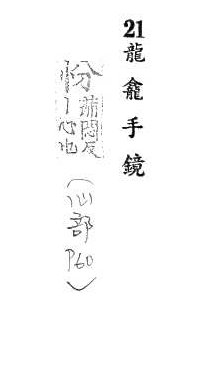 21龍龕手鏡
蒲悶反
丨心也
(心部 P60)